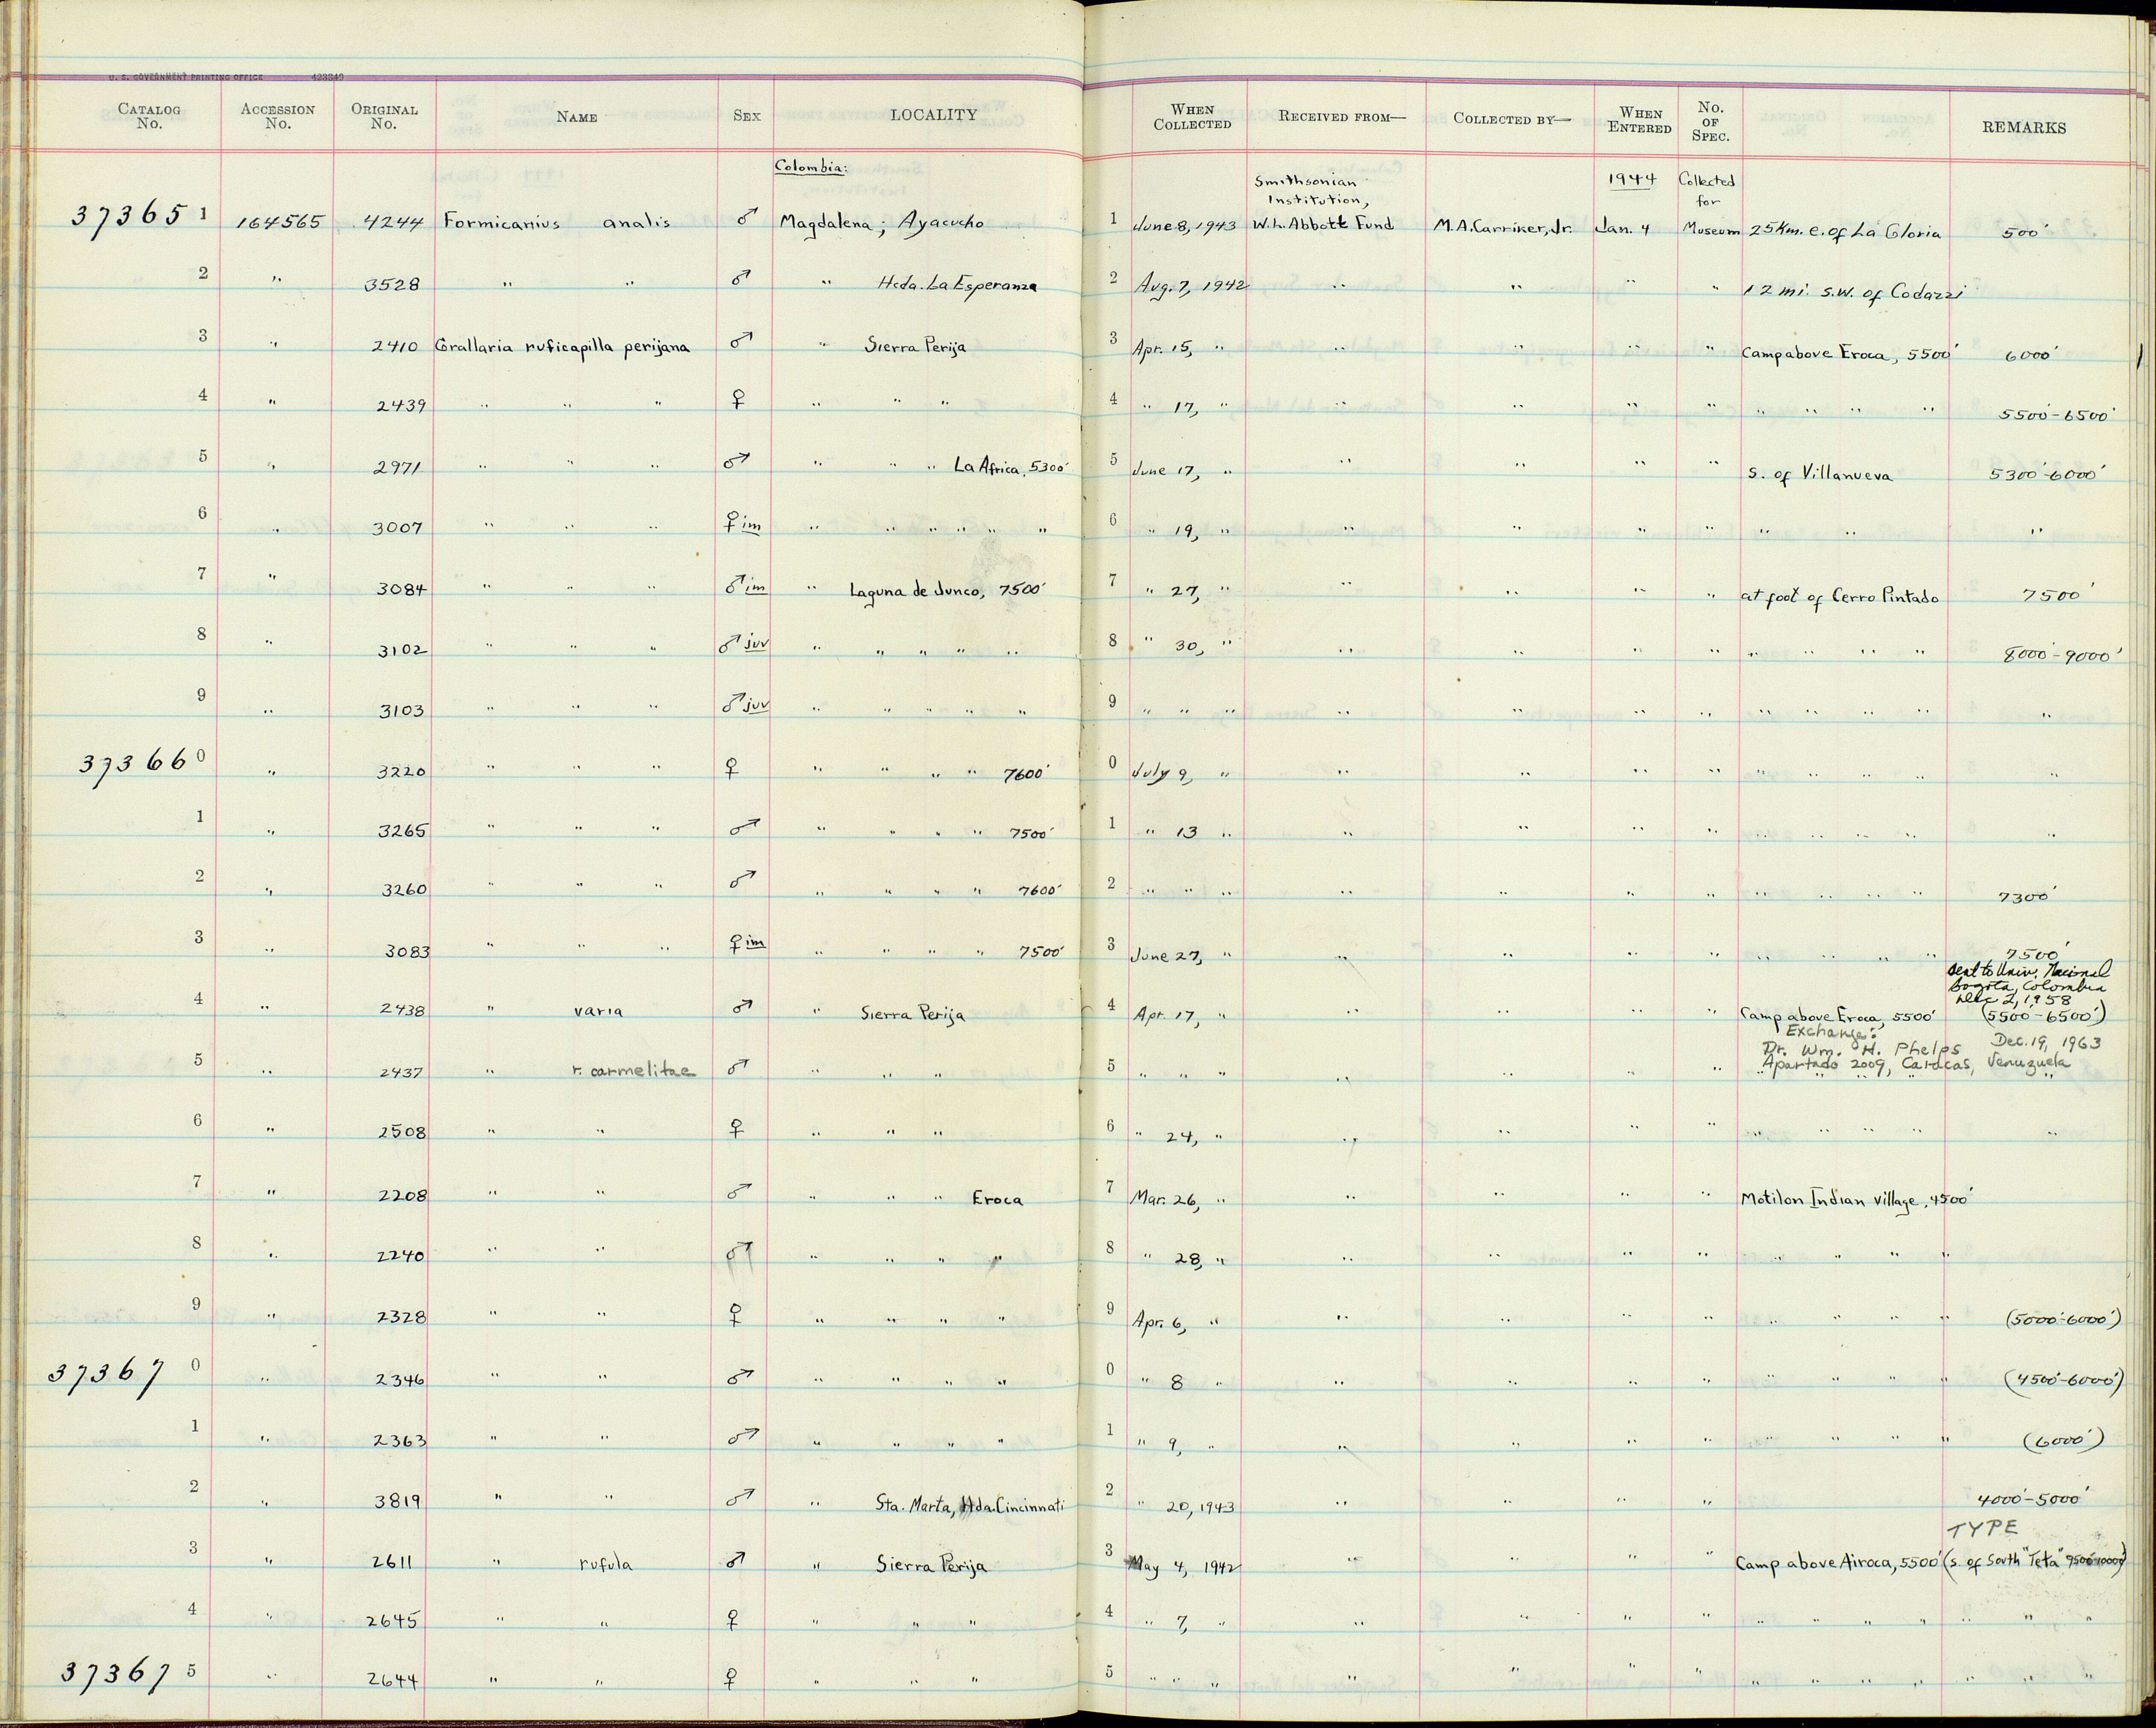 U. S. GOVERNMENT PRINTING OFFICE 423349
CATALOG No. ACCESSION No. ORIGINAL No. NAME SEX LOCALITY WHEN COLLECTED RECEIVED FROM— COLLECTED BY— WHEN ENTERED No. OF SPEC. REMARKS
Colombia: Smithsonian Institution, 1944 Collected for
37365 1 164565 4244 Formicarius analis ♂ Magdalena; Ayacucho 1 June 8, 1943 W.L. Abbott Fund M.A. Carriker, Jr. Jan. 4 Museum 25 Km. e. of La Gloria 500'
2 " 3528 " " ♂ " Hcda. La Esperanza 2 Aug. 7, 1942 " " " " 12 mi. s.w. of Codazzi
3 " 2410 Grallaria ruficapilla perijana ♂ " Sierra Perija 3 Apr. 15, " " " " " Camp above Eroca, 5500' 6000'
4 " 2439 " " " ♀ " " " 4 " 17, " " " " " " " " " 5500'-6500'
5 " 2971 " " " ♂ " " " La Africa, 5300' 5 June 17, " " " " " s. of Villanueva 5300'-6000'
6 " 3007 " " " ♀ im " " " " " " 6 " 19, " " " " " " " "
7 " 3084 " " " ♂ im " Laguna de Junco, 7500' 7 " 27, " " " " " at foot of Cerro Pintado 7500'
8 " 3102 " " " ♂ juv " " " " " 8 " 30, " " " " " " " " " 8000'-9000'
9 " 3103 " " " ♂ juv " " " " " 9 " " " " " " " " " " " "
37366 0 " 3220 " " " ♀ " " " " 7600' 0 July 9, " " " " " " " " " "
1 " 3265 " " " ♂ " " " " 7500' 1 " 13 " " " " " " " " " "
2 " 3260 " " " ♂ " " " " 7600' 2 " " " " " " " " " " " 7300'
3 " 3083 " " " ♀ im " " " " 7500' 3 June 27, " " " " " " " " " 7500'
sent to Univ. Nacional
Bogota, Colombia
Dec 2, 1958
4 " 2438 " varia ♂ " Sierra Perija 4 Apr. 17, " " " " " Camp above Eroca, 5500' (5500'-6500')
Exchange:
Dr. Wm. H. Phelps Dec. 19, 1963
Apartado 2009, Caracas, Venuzuela
5 " 2437 " r. carmelitae ♂ " " " 5 " " " " " " " " " " " "
6 " 2508 " " ♀ " " " 6 " 24, " " " " " " " " " "
7 " 2208 " " ♂ " " " Eroca 7 Mar. 26, " " " " " Motilon Indian village, 4500'
8 " 2240 " " ♂ " " " " 8 " 28, " " " " " " " " "
9 " 2328 " " ♀ " " " " 9 Apr. 6, " " " " " " " " " (5000'-6000')
37367 0 " 2346 " " ♂ " " " " 0 " 8 " " " " " " " " " (4500'-6000')
1 " 2363 " " ♂ " " " " 1 " 9, " " " " " " " " " (6000')
2 " 3819 " " ♂ " Sta. Marta, Hda. Cincinnati 2 " 20, 1943 " " " " 4000'-5000'
TYPE
3 " 2611 " rufula ♂ " Sierra Perija 3 May 4, 1942 " " " " Camp above Airoca, 5500' (s. of South "Teta" 9500'-10000')
4 " 2645 " " ♀ " " " 4 " 7, " " " " " " " " " " " "
37367 5 " 2644 " " ♀ " " " 5 " " " " " " " " " " " " " "